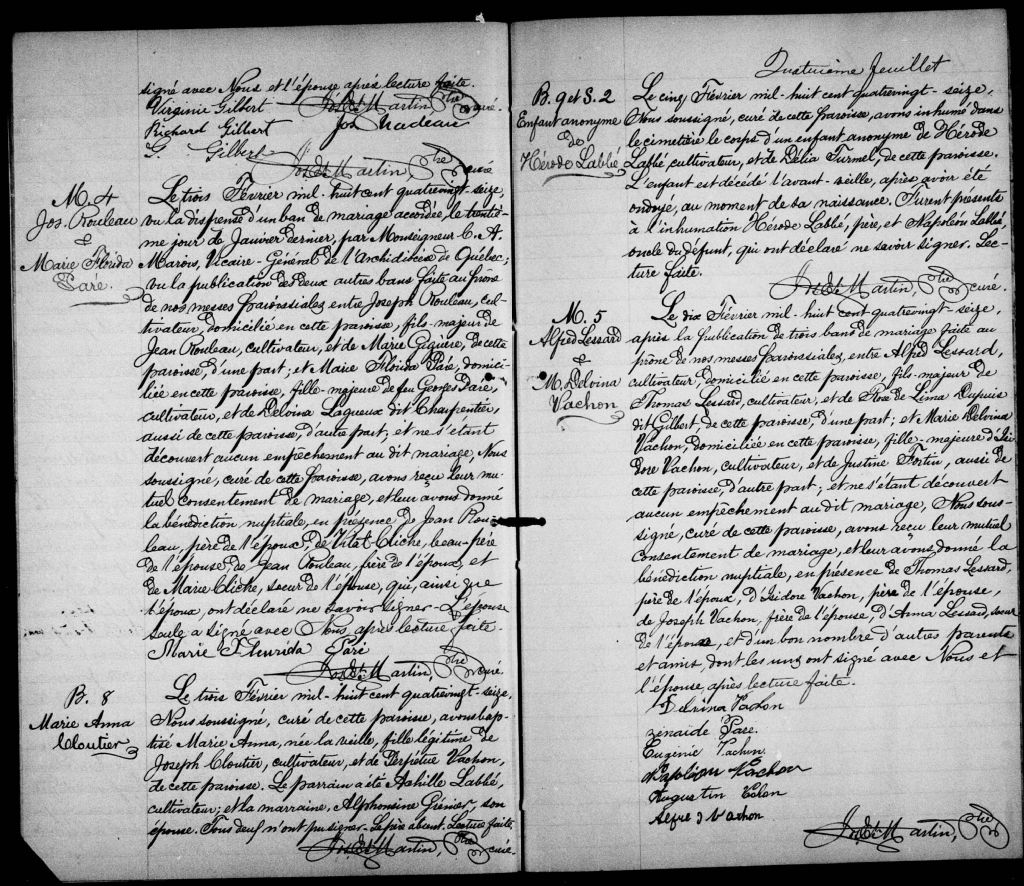 signé avec Nous et l'épouse après lecture faite.
Virginie Gilbert Jos. Et. Martin, Ptre curé.
Richard Gilbert Jos Nadeau
G. Gilbert
Jos. Et. Martin, Ptre curé
M. 4
Jos. Rouleau
&
Marie Florida
Paré.
Le trois Février mil-huit cent quatrevingt-seize,
vu la dispense d'un ban de mariage accordée, le trentiè-
me jour de Janvier dernier, par Monseigneur C. A.
Marois, Vicaire-Général de l'Archidiocèse de Québec;
vu la publication des deux autres bans faite au prône
de nos messes paroissiales, entre Joseph Rouleau, cul-
tivateur, domicilié en cette paroisse, fils-majeur de
Jean Rouleau, cultivateur, et de Marie Giguère, de cette
paroisse, d'une part; et Marie Florida Paré, domici-
liée en cette paroisse, fille-majeure de feu Georges Paré,
cultivateur, et de Delvina Lagueux dit Charpentier,
aussi de cette paroisse, d'autre part; et ne s'étant
découvert aucun empêchement au dit mariage, Nous
soussigné, curé de cette paroisse, avons reçu leur mu-
tuel consentement de mariage, et leur avons donné
la bénédiction nuptiale, en présence de Jean Rou-
leau, père de l'époux, de Vital Cliche, beau-père
de l'épouse, de Jean Rouleau, frère de l'époux, et
de Marie Cliche, soeur de l'épouse, qui, ainsi que
l'époux, ont déclaré ne savoir signer. L'épouse
seule a signé avec Nous après lecture faite.
Marie Flourida Paré
Jos. Et. Martin, Ptre curé.
B. 8
Marie Anna
Cloutier
Le trois Février mil-huit cent quatrevingt-seize,
Nous soussigné, curé de cette paroisse, avons bap-
tisé Marie Anna, née la veille, fille légitime de
Joseph Cloutier, cultivateur, et de Perpétue Vachon,
de cette paroisse. Le parrain a été Achille Labbé,
cultivateur; et la marraine, Alphonsine Grenier, son
épouse. Tous deux n'ont pu signer. Le père absent. Lecture faite.
Jos. Et. Martin, Ptre curé.
Quatrième feuillet
B. 9 et S. 2
Enfant anonyme
de
Hérode Labbé
Le cinq Février mil-huit cent quatrevingt-seize,
Nous soussigné, curé de cette paroisse, avons inhumé dans
le cimetière le corps d'un enfant anonyme de Hérode
Labbé cultivateur, et de Délia Turmel, de cette paroisse.
L'enfant est décédé l'avant-veille, après avoir été
ondoyé, au moment de sa naissance. Furent présents
à l'inhumation Hérode Labbé, père, et Napoléon Labbé,
oncle du défunt, qui ont déclaré ne savoir signer. Lec-
ture faite.
Jos. Et. Martin, Ptre curé.
M. 5
Alfred Lessard
&
M. Delvina
Vachon
Le dix Février mil-huit cent quatrevingt-seize,
après la publication de trois bans de mariage faite au
prône de nos messes paroissiales, entre Alfred Lessard,
cultivateur, domicilié en cette paroisse, fils-majeur de
Thomas Lessard, cultivateur, et de Rose de Lima Dupuis
dit Gilbert, de cette paroisse, d'une part; et Marie Delvina
Vachon, domiciliée en cette paroisse, fille-majeure d'Isi-
dore Vachon, cultivateur, et de Justine Fortin, aussi de
cette paroisse, d'autre part; et ne s'étant découvert
aucun empêchement au dit mariage, Nous sous-
signé, curé de cette paroisse, avons reçu leur mutuel
consentement de mariage, et leur avons donné la
bénédiction nuptiale, en présence de Thomas Lessard,
père de l'époux, d'Isidore Vachon, père de l'épouse,
de Joseph Vachon, frère de l'épouse, d'Anna Lessard, soeur
de l'époux, et d'un bon nombre d'autres parents
et amis, dont les uns ont signé avec Nous et
l'épouse, après lecture faite.
Delvina Vachon
Zenaïde Paré.
Eugenie Vachon
Napoleon Vachon
Augustin Vachon
Alfred Vachon
Jos. Et. Martin, Ptre